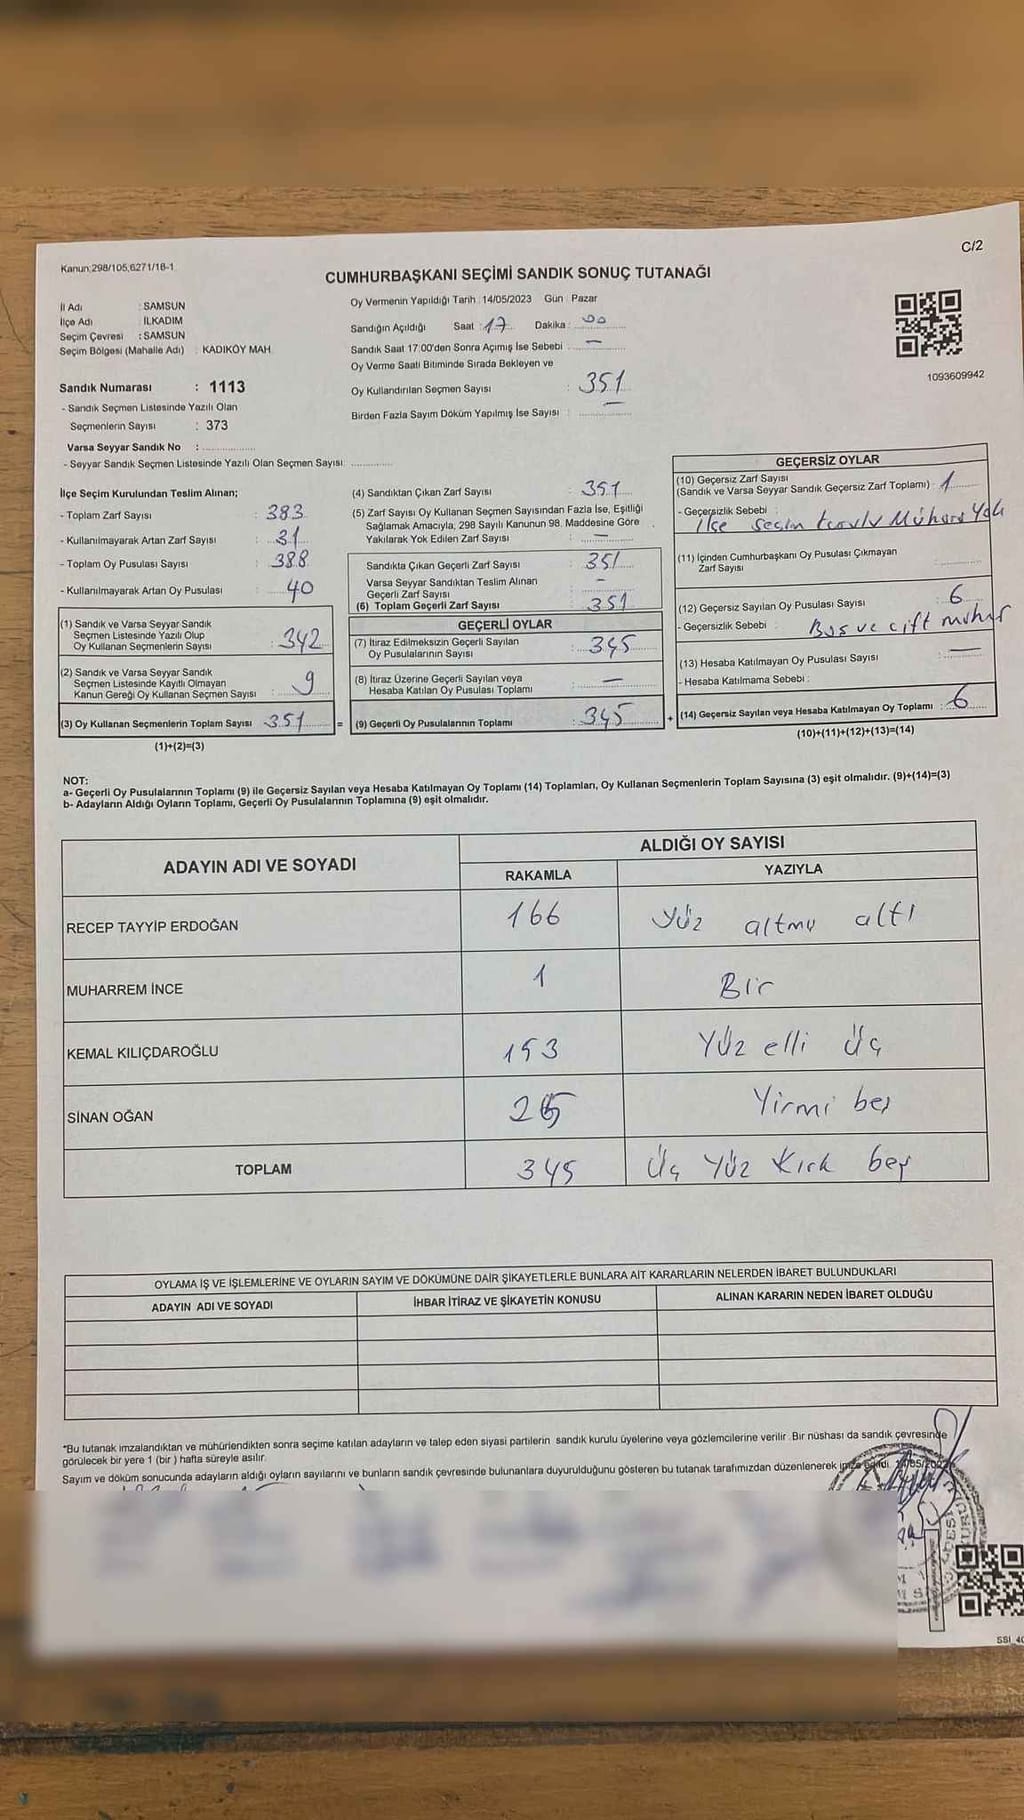 C/2
Kanun;298/105,6271/16-1
CUMHURBAŞKANI SEÇİMİ SANDIK SONUÇ TUTANAĞI
İl Adı : SAMSUN
İlçe Adı İLKADIM
Seçim Çevresi : SAMSUN
Seçim Bölgesi (Mahalle Adı) : KADIKÖY MAH.
Sandık Numarası : 1113
- Sandık Seçmen Listesinde Yazılı Olan
Seçmenlerin Sayısı : 373
Varsa Seyyar Sandık No :
- Seyyar Sandık Seçmen Listesinde Yazılı Olan Seçmen Sayısı:
Oy Vermenin Yapıldığı Tarih : 14/05/2023 Gün : Pazar
Sandığın Açıldığı Saat : 17 Dakika : 00
Sandık Saat 17:00'den Sonra Açımış İse Sebebi : —
Oy Verme Saati Bitiminde Sırada Bekleyen ve
Oy Kullandırılan Seçmen Sayısı : 351
Birden Fazla Sayım Döküm Yapılmış İse Sayısı : —
1093609942
İlçe Seçim Kurulundan Teslim Alınan;
- Toplam Zarf Sayısı : 383
- Kullanılmayarak Artan Zarf Sayısı : 31
- Toplam Oy Pusulası Sayısı : 388
- Kullanılmayarak Artan Oy Pusulası : 40
(1) Sandık ve Varsa Seyyar Sandık
Seçmen Listesinde Yazılı Olup
Oy Kullanan Seçmenlerin Sayısı : 342
(2) Sandık ve Varsa Seyyar Sandık
Seçmen Listesinde Kayıtlı Olmayan
Kanun Gereği Oy Kullanan Seçmen Sayısı : 9
(3) Oy Kullanan Seçmenlerin Toplam Sayısı : 351 =
(1)+(2)=(3)
(4) Sandıktan Çıkan Zarf Sayısı : 351
(5) Zarf Sayısı Oy Kullanan Seçmen Sayısından Fazla İse, Eşitliği
Sağlamak Amacıyla; 298 Sayılı Kanunun 98. Maddesine Göre
Yakılarak Yok Edilen Zarf Sayısı : —
Sandıkta Çıkan Geçerli Zarf Sayısı : 351
Varsa Seyyar Sandıktan Teslim Alınan
Geçerli Zarf Sayısı : —
(6) Toplam Geçerli Zarf Sayısı : 351
GEÇERLİ OYLAR
(7) İtiraz Edilmeksizin Geçerli Sayılan
Oy Pusulalarının Sayısı : 345
(8) İtiraz Üzerine Geçerli Sayılan veya
Hesaba Katılan Oy Pusulası Toplamı : —
(9) Geçerli Oy Pusulalarının Toplamı : 345 +
GEÇERSİZ OYLAR
(10) Geçersiz Zarf Sayısı
(Sandık ve Varsa Seyyar Sandık Geçersiz Zarf Toplamı) : 1
- Geçersizlik Sebebi :
İlçe seçim Mührü Yok
(11) İçinden Cumhurbaşkanı Oy Pusulası Çıkmayan
Zarf Sayısı :
(12) Geçersiz Sayılan Oy Pusulası Sayısı : 6
- Geçersizlik Sebebi : Boş ve çift mühür
(13) Hesaba Katılmayan Oy Pusulası Sayısı : —
- Hesaba Katılmama Sebebi :
(14) Geçersiz Sayılan veya Hesaba Katılmayan Oy Toplamı : 6
(10)+(11)+(12)+(13)=(14)
NOT:
a- Geçerli Oy Pusulalarının Toplamı (9) ile Geçersiz Sayılan veya Hesaba Katılmayan Oy Toplamı (14) Toplamları, Oy Kullanan Seçmenlerin Toplam Sayısına (3) eşit olmalıdır. (9)+(14)=(3)
b- Adayların Aldığı Oyların Toplamı, Geçerli Oy Pusulalarının Toplamına (9) eşit olmalıdır.
ADAYIN ADI VE SOYADI ALDIĞI OY SAYISI
RAKAMLA YAZIYLA
RECEP TAYYİP ERDOĞAN 166 Yüz altmış altı
MUHARREM İNCE 1 Bir
KEMAL KILIÇDAROĞLU 153 Yüz elli üç
SİNAN OĞAN 25 Yirmi beş
TOPLAM 345 Üç Yüz Kırk beş
OYLAMA İŞ VE İŞLEMLERİNE VE OYLARIN SAYIM VE DÖKÜMÜNE DAİR ŞİKAYETLERLE BUNLARA AİT KARARLARIN NELERDEN İBARET BULUNDUKLARI
ADAYIN ADI VE SOYADI İHBAR İTİRAZ VE ŞİKAYETİN KONUSU ALINAN KARARIN NEDEN İBARET OLDUĞU
*Bu tutanak imzalandıktan ve mühürlendikten sonra seçime katılan adayların ve talep eden siyasi partilerin sandık kurulu üyelerine veya gözlemcilerine verilir. Bir nüshası da sandık çevresinde
görülecek bir yere 1 (bir ) hafta süreyle asılır.
Sayım ve döküm sonucunda adayların aldığı oyların sayılarını ve bunların sandık çevresinde bulunanlara duyurulduğunu gösteren bu tutanak tarafımızdan düzenlenerek imza edildi.